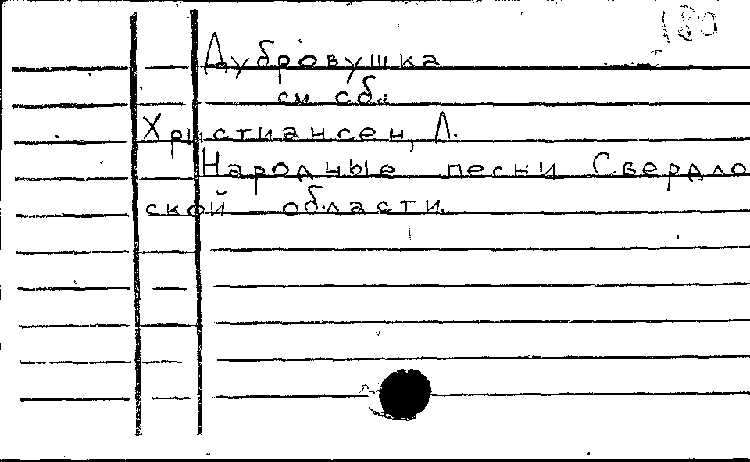 180
Дубровушка
см сб.
Христиансен, Л.
Народные песни Свердло
ской области.